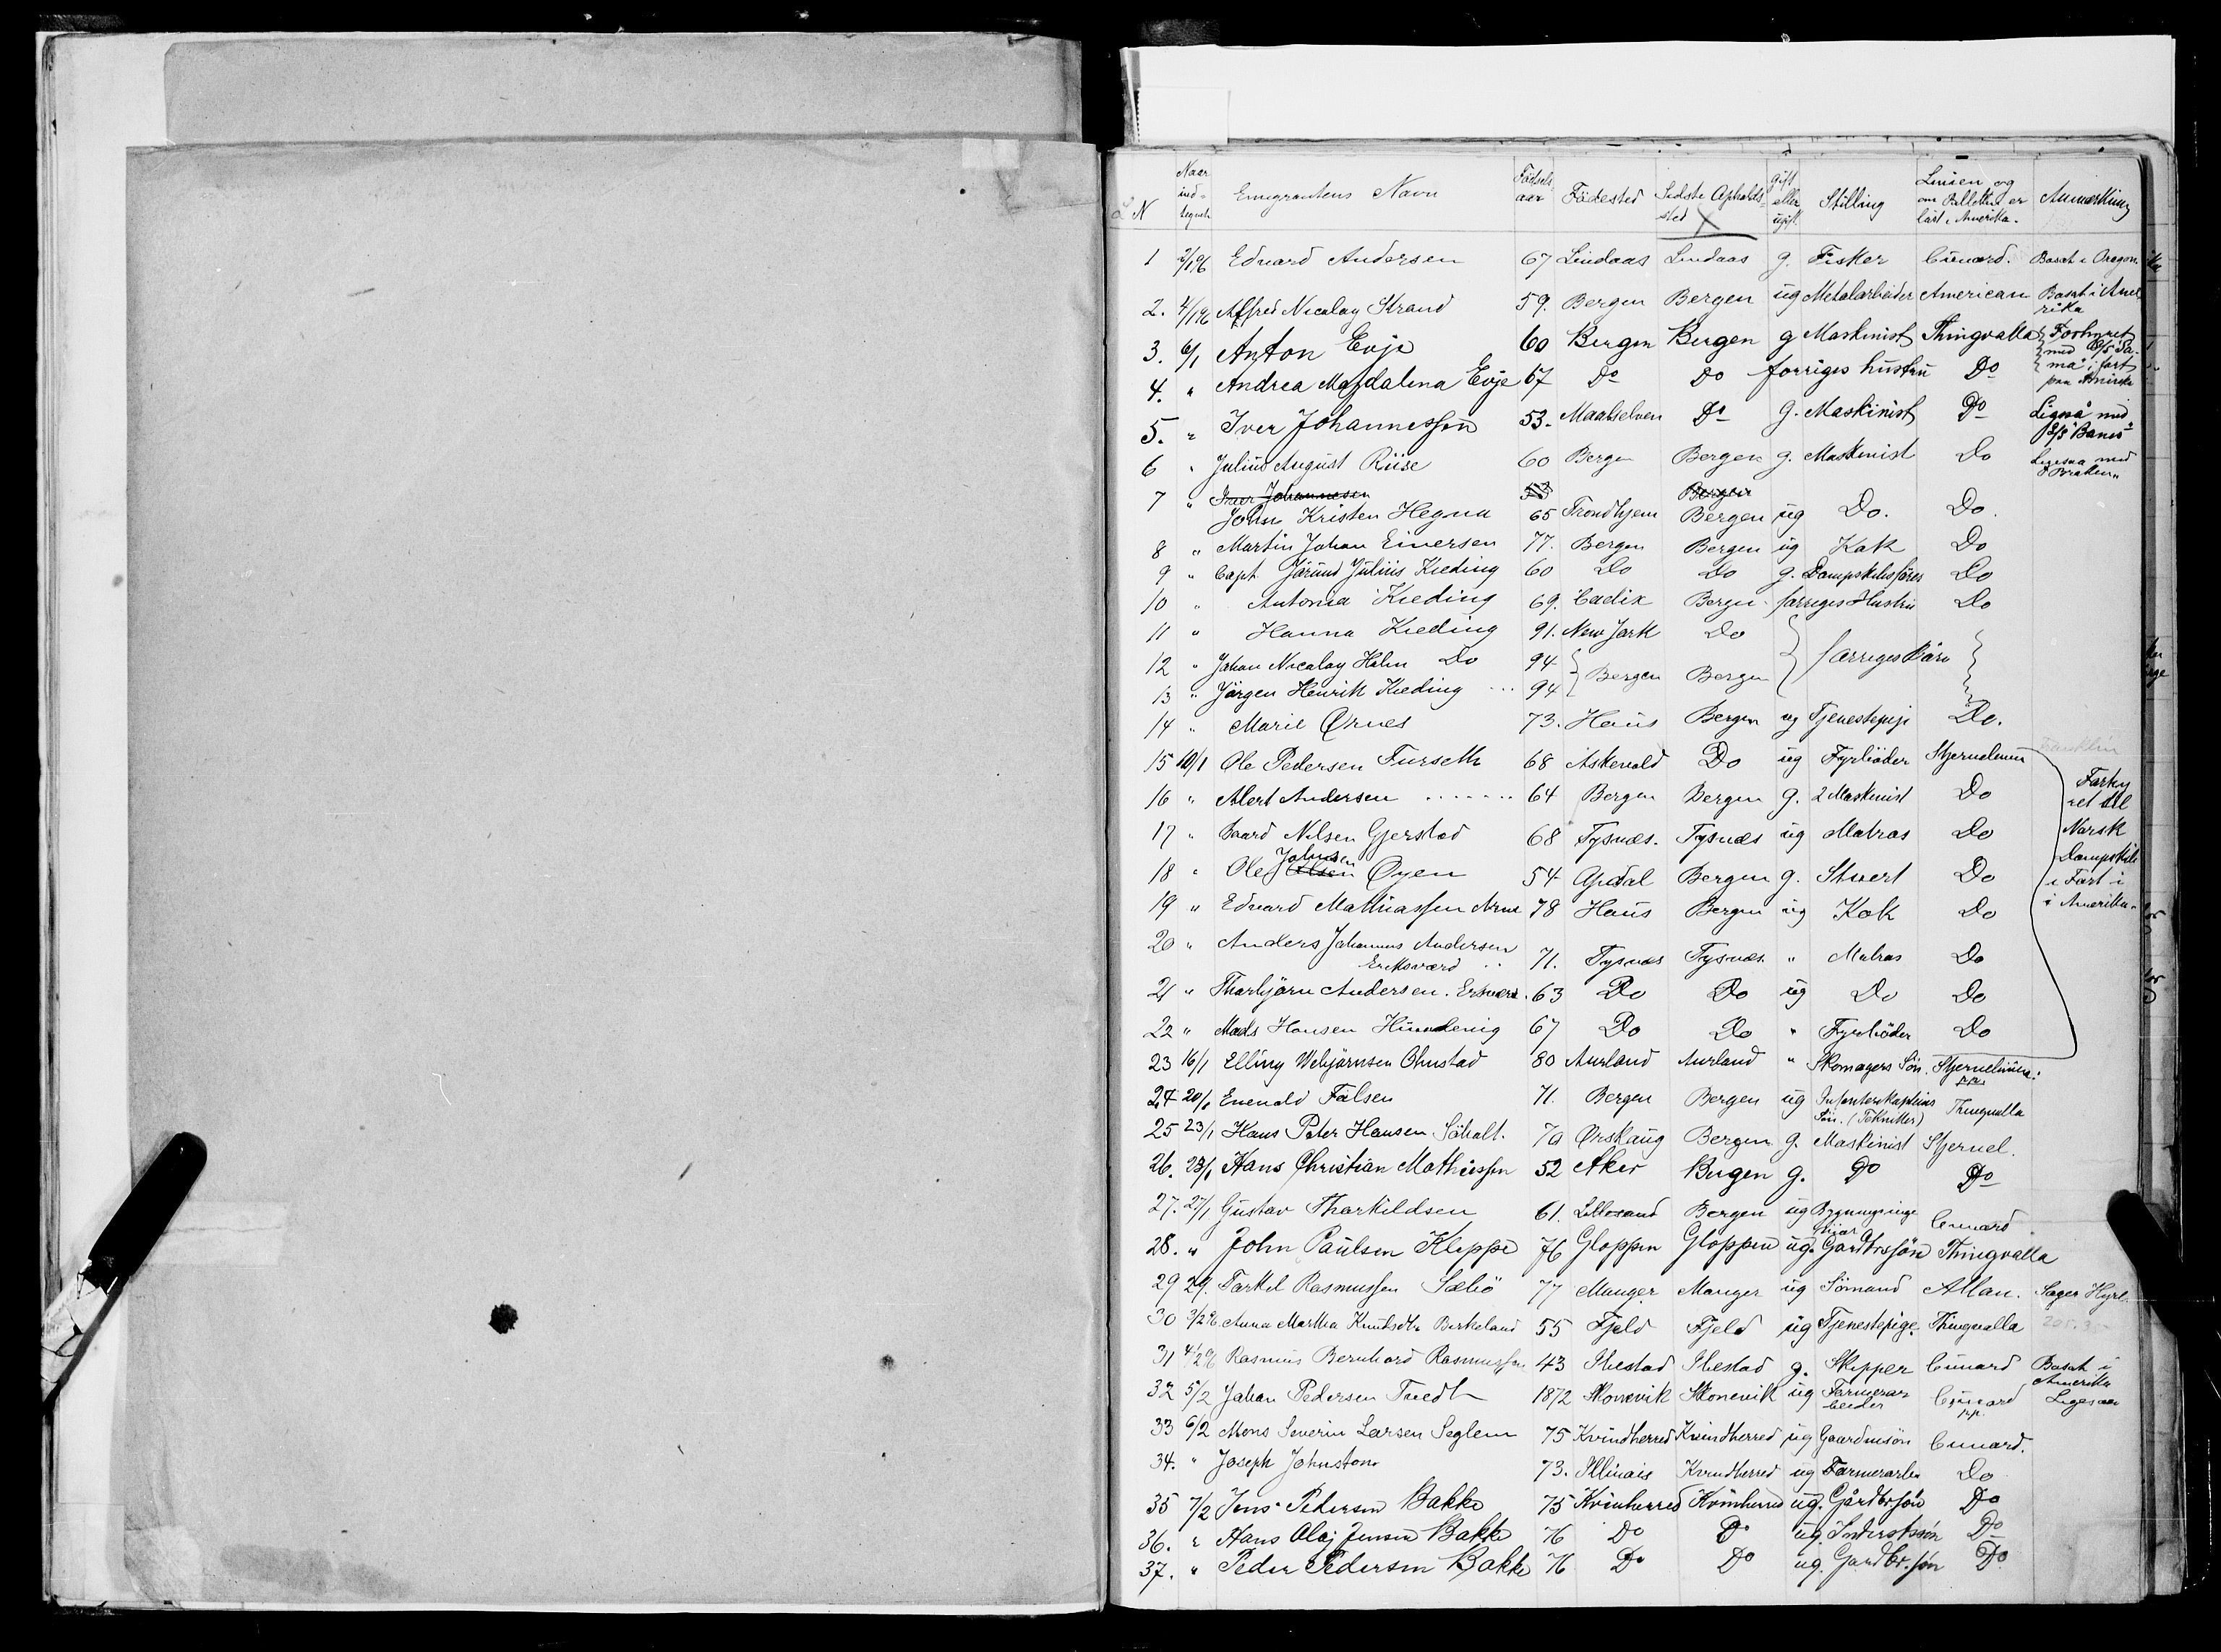 L N Naar ind- tegnet Emigrantens Navn Födsels aar Födested Sidste Opholds- sted Gift eller ugift Stilling Linien og om Billetten er löst i Amerika. Anmærkning
1 2/1 96 Edvard Andersen 67 Lindaas Lindaas g. Fisker Cunard. Bosat i Oregon
2. 4/1 96 Alfred Nicolay Strand 59. Bergen Bergen ug Metalarbeider American Bosat i Ame rika
3. 6/1 Anton Evje 60 Bergen Bergen g Maskinist Thingvalla Forhyret med
4. " Andrea Magdalena Evje 67 Do Do forriges hustru Do i fart paa Amerika
5. " Iver Johannessen 53. Maalselven Do g. Maskinist Do Ligesaa med
6 " Julius August Riise 60 Bergen Bergen g. Maskinist Do Ligesaa med
7 " Iver Johannesen 53 Bergen
John Kristen Hegna 65 Trondhjem Bergen ug Do. Do.
8 " Martin Johan Einersen 77. Bergen Bergen ug Kok Do
9 " Capt Jörund Julius Kieding 60 Do Do g. Dampskibsförer Do
10 " Antonia Kieding 69. Cadix Bergen forriges Hustru Do
11 " Hanna Kieding 91. New York Do
12 " Johan Nicolay Holm Do 94 Bergen Bergen forriges Börn
13 " Jörgen Henrik Kieding 94
14 " Marie Ørnes 73. Haus Bergen ug Tjenestepige Do.
15 10/1 Ole Pedersen Furseth 68 Askevold Do ug Fyrböder Stjernelinien
16 " Alert Andersen 64 Bergen Bergen g. 2 Maskinist Do Forhy ret til
17 " Baard Nilsen Gjerstad 68 Tysnæs. Tysnæs ug Matros Do Norsk
18 " Ole Johnsen Øyen 54 Opdal Bergen g. Stuert Do Dampskib i Fart i
19 " Edvard Mathiassen 78 Haus Bergen ug Kok Do i Amerika.
20 " Anders Johannes Andersen
71. Tysnæs Tysnæs " Matros Do
21 " Thorbjörn Andersen. 63 Do Do ug Do Do
22 " Mads Hansen 67 Do Do " Fyrböder Do
23 16/1 Elling Vebjörnsen Ohnstad 80 Aurland Aurland " Skomagers Sön. Stjernelinien.
24 20/1 Enevold Falsen 71. Bergen Bergen ug Infanterikapteins Sön. (Tekniker) Thingvalla
25 23/1 Hans Peter Hansen Söholt. 70 Ørskaug Bergen g. Maskinist Stjernel.
26. 23/1 Hans Christian Mathiessen 52 Aker Bergen g. Do Do
27. 27/1 Gustav Tharkildsen 61. Lillesand Bergen ug Bygningsinge niör Cunard
28. " John Paulsen Kleppe 76 Gloppen Gloppen ug. Gardbrsjön Thingvalla
29 29. Torkel Rasmussen Sæbö 77 Manger Manger ug Sömand Allan. Söger Hyre.
30 3/2 96. Anna Martha Knudsdtr Birkeland 55 Fjeld Fjeld ug Tjenestepige. Thingvalla
31 4/2 96 Rasmus Bernhard Rasmussen 43 Ibestad Ibestad g. Skipper Cunard Bosat i Amerika
32 5/2 Johan Pedersen Tvedt 1872 Skonevik Skonevik ug Farmerar beider Cunard pp. Ligesaa
33 6/2 Mons Severin Larsen Seglem 75 Kvindherred Kvindherred ug Gaardmsön Cunard.
34. " Joseph Johnston 73. Illinois Kvindherred ug Farmerarb. Do
35 7/2 Jens Pedersen Bakke 75 Kvinherred Kvinherred ug. Gårdbrsjön Do
36. " Hans Olaj Jensen Bakke 76 Do Do ug. Inderstssön Do
37. " Peder Pedersen Bakke 76 Do Do ug. Gardbr. sjön Do